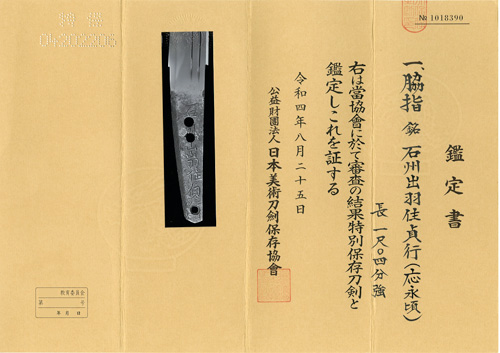 № 1018390
鑑定書
一、脇指 銘 石州出羽住貞行(応永頃)
長 一尺〇四分強
右は當協會に於て審査の結果特別保存刀剣と
鑑定しこれを証する
令和四年八月二十五日
公益財團法人 日本美術刀劍保存協會
教育委員会
第 号
年 月 日